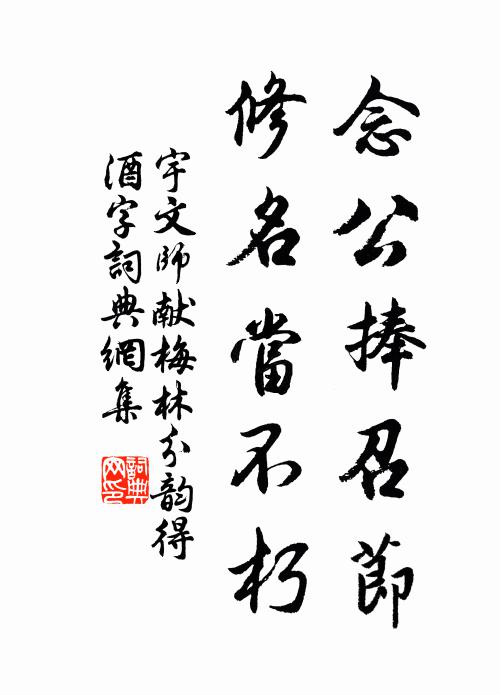 念公捧召節
修名當不朽
宇文師献梅林分韵得
酒字詞典網集
詞典
网印